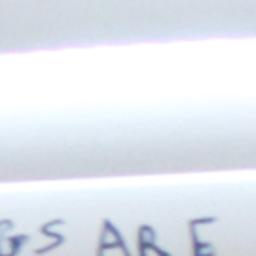 GS ARE